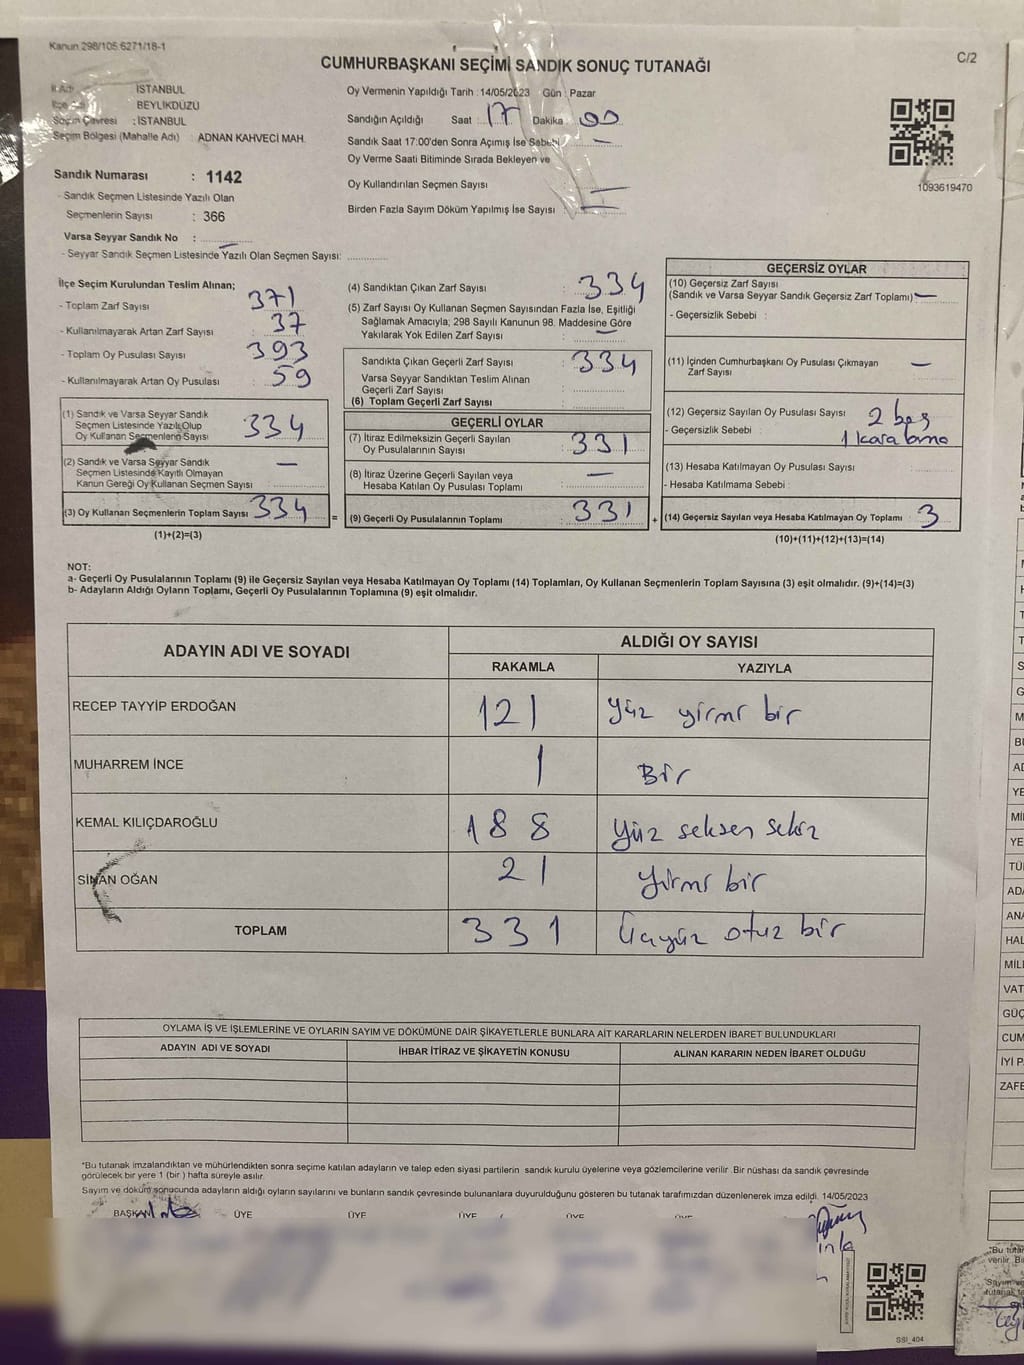 Kanun 298/105.6271/18-1
C/2
CUMHURBAŞKANI SEÇİMİ SANDIK SONUÇ TUTANAĞI
İl Adı : İSTANBUL
İlçe Adı : BEYLİKDÜZÜ
Seçim Çevresi : İSTANBUL
Seçim Bölgesi (Mahalle Adı) : ADNAN KAHVECİ MAH.
Sandık Numarası : 1142
- Sandık Seçmen Listesinde Yazılı Olan
Seçmenlerin Sayısı : 366
Varsa Seyyar Sandık No : –
- Seyyar Sandık Seçmen Listesinde Yazılı Olan Seçmen Sayısı:
Oy Vermenin Yapıldığı Tarih : 14/05/2023 Gün : Pazar
Sandığın Açıldığı Saat : 17 Dakika : 00
Sandık Saat 17:00'den Sonra Açımış İse Sebebi –
Oy Verme Saati Bitiminde Sırada Bekleyen ve
Oy Kullandırılan Seçmen Sayısı –
Birden Fazla Sayım Döküm Yapılmış İse Sayısı : –
1093619470
İlçe Seçim Kurulundan Teslim Alınan;
- Toplam Zarf Sayısı : 371
- Kullanılmayarak Artan Zarf Sayısı : 37
- Toplam Oy Pusulası Sayısı : 393
- Kullanılmayarak Artan Oy Pusulası : 59
(1) Sandık ve Varsa Seyyar Sandık
Seçmen Listesinde Yazılı Olup
Oy Kullanan Seçmenlerin Sayısı : 334
(2) Sandık ve Varsa Seyyar Sandık
Seçmen Listesinde Kayıtlı Olmayan
Kanun Gereği Oy Kullanan Seçmen Sayısı : –
(3) Oy Kullanan Seçmenlerin Toplam Sayısı : 334
(1)+(2)=(3)
(4) Sandıktan Çıkan Zarf Sayısı : 334
(5) Zarf Sayısı Oy Kullanan Seçmen Sayısından Fazla İse, Eşitliği
Sağlamak Amacıyla; 298 Sayılı Kanunun 98. Maddesine Göre
Yakılarak Yok Edilen Zarf Sayısı : –
Sandıkta Çıkan Geçerli Zarf Sayısı : 334
Varsa Seyyar Sandıktan Teslim Alınan
Geçerli Zarf Sayısı :
(6) Toplam Geçerli Zarf Sayısı :
GEÇERLİ OYLAR
(7) İtiraz Edilmeksizin Geçerli Sayılan
Oy Pusulalarının Sayısı : 331
(8) İtiraz Üzerine Geçerli Sayılan veya
Hesaba Katılan Oy Pusulası Toplamı : –
= (9) Geçerli Oy Pusulalarının Toplamı : 331
GEÇERSİZ OYLAR
(10) Geçersiz Zarf Sayısı
(Sandık ve Varsa Seyyar Sandık Geçersiz Zarf Toplamı) : –
- Geçersizlik Sebebi :
(11) İçinden Cumhurbaşkanı Oy Pusulası Çıkmayan
Zarf Sayısı : –
(12) Geçersiz Sayılan Oy Pusulası Sayısı : 2 boş
- Geçersizlik Sebebi : 1 karalama
(13) Hesaba Katılmayan Oy Pusulası Sayısı :
- Hesaba Katılmama Sebebi :
+ (14) Geçersiz Sayılan veya Hesaba Katılmayan Oy Toplamı : 3
(10)+(11)+(12)+(13)=(14)
NOT:
a- Geçerli Oy Pusulalarının Toplamı (9) ile Geçersiz Sayılan veya Hesaba Katılmayan Oy Toplamı (14) Toplamları, Oy Kullanan Seçmenlerin Toplam Sayısına (3) eşit olmalıdır. (9)+(14)=(3)
b- Adayların Aldığı Oyların Toplamı, Geçerli Oy Pusulalarının Toplamına (9) eşit olmalıdır.
ADAYIN ADI VE SOYADI ALDIĞI OY SAYISI
RAKAMLA YAZIYLA
RECEP TAYYİP ERDOĞAN 121 Yüz yirmi bir
MUHARREM İNCE 1 Bir
KEMAL KILIÇDAROĞLU 188 Yüz seksen sekiz
SİNAN OĞAN 21 Yirmi bir
TOPLAM 331 Üçyüz otuz bir
OYLAMA İŞ VE İŞLEMLERİNE VE OYLARIN SAYIM VE DÖKÜMÜNE DAİR ŞİKAYETLERLE BUNLARA AİT KARARLARIN NELERDEN İBARET BULUNDUKLARI
ADAYIN ADI VE SOYADI İHBAR İTİRAZ VE ŞİKAYETİN KONUSU ALINAN KARARIN NEDEN İBARET OLDUĞU
*Bu tutanak imzalandıktan ve mühürlendikten sonra seçime katılan adayların ve talep eden siyasi partilerin sandık kurulu üyelerine veya gözlemcilerine verilir. Bir nüshası da sandık çevresinde
görülecek bir yere 1 (bir) hafta süreyle asılır.
Sayım ve döküm sonucunda adayların aldığı oyların sayılarını ve bunların sandık çevresinde bulunanlara duyurulduğunu gösteren bu tutanak tarafımızdan düzenlenerek imza edildi. 14/05/2023
BAŞKAN ÜYE ÜYE ÜYE ÜYE ÜYE
SSİ_404